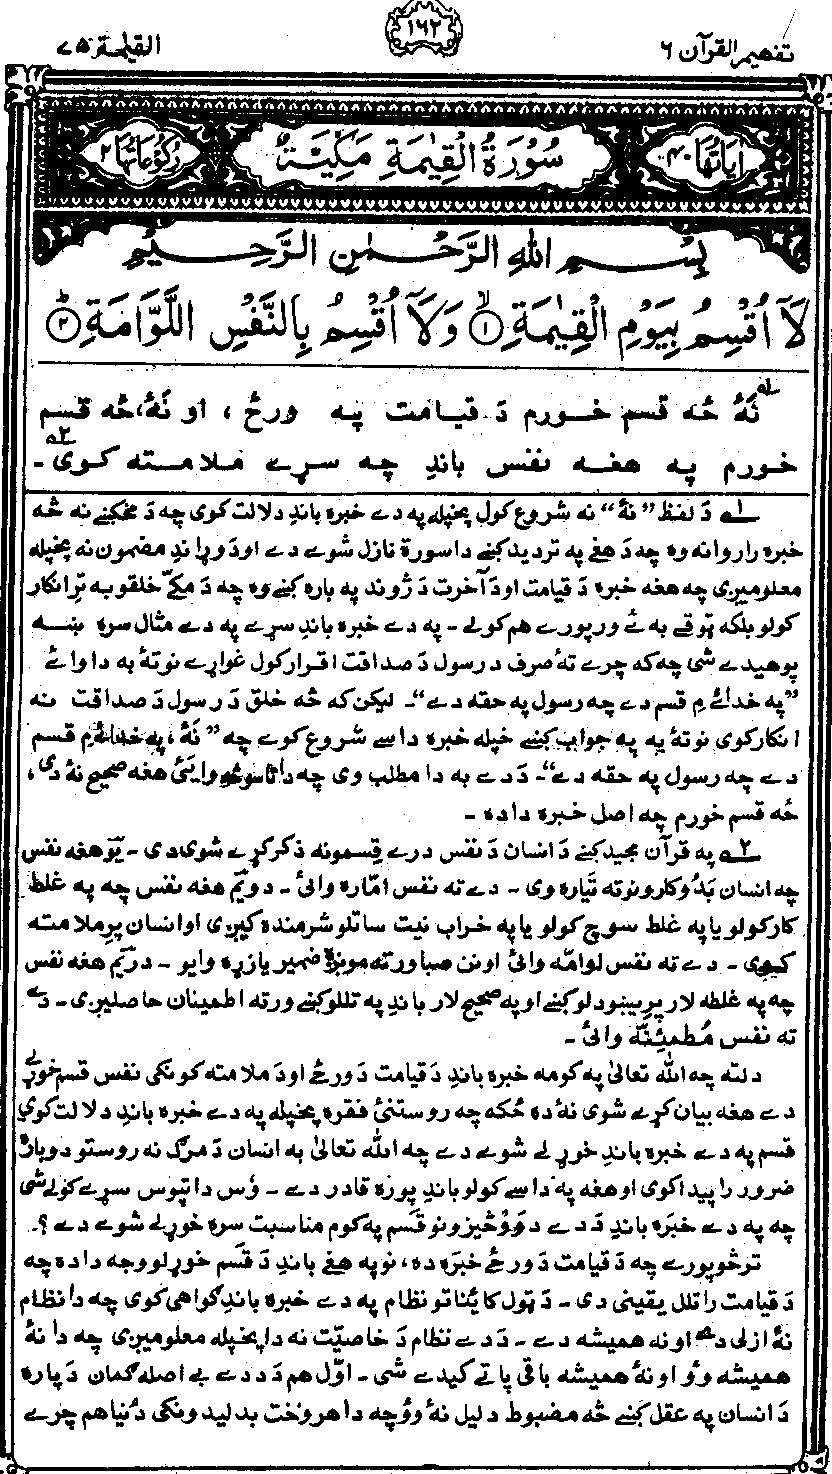 تفهیم القرآن ۶
۱۶۲
القیٰمة ۷۵
اٰیاتها ۴۰
سُوْرَةُ الْقِیٰمَةِ مَكِّیَّةٌ
رُكُوْعَاتُها ۲
بِسْمِ اللهِ الرَّحْمٰنِ الرَّحِیْمِ
لَاۤ اُقْسِمُ بِیَوْمِ الْقِیٰمَةِ ۱ وَلَاۤ اُقْسِمُ بِالنَّفْسِ اللَّوَّامَةِ ۲
نَهٔ ځه قسم خورم دَ قیامت په ورځ ، او نَهٔ، ځه قسم
خورم په هغه نفس باندِ چه سړے ملامته کوی -
۱ دَ لفظ ”نهٔ“ نه شروع کول پخپله په دے خبره باندِ دلالت کوی چه دَ مخکښے نه څه
خبره راروانه وه چه دَ هغے په تردید کښے دا سورة نازل شوے دے اودَ وړاندِ مضمون نه پخپله
معلومیږی چه هغه خبره دَ قیامت اودَ آخرت دَ ژوند په باره کښے وه چه دَ مکّے خلقو به ترِ انکار
کولو بلکه ټوقے به ئے ورپورے هم کولے - په دے خبره باندِ سړے په دے مثال سره ښه
پوهیدے شی چه که چرے تهٔ صرف د رسول دَ صداقت اقرار کول غواړے نو تهٔ به دا وائے
”په خدائے مِ قسم دے چه رسول په حقه دے“- لیکن که څه خلق دَ رسول دَ صداقت نه
انکار کوی نو تهٔ به په جواب کښے خپله خبره داسے شروع کوے چه ”نَهٔ ، په خدائے مِ قسم
دے چه رسول په حقه دے“- دَ دے به دا مطلب وی چه دا تاسو څه وایٔ هغه صحیح نهٔ دی،
ځه قسم خورم چه اصل خبره داده -
۲ په قرآن مجید کښے دَ انسان دَ نفس درے قِسمونه ذکر کړے شوی دی - یَو هغه نفس
چه انسان بَدُو کارونو ته تیاره وی - دے ته نفس امّاره وائی - دویم هغه نفس چه په غلط
کار کولو یا په غلط سوچ کولو یا په خراب نیت ساتلو شرمنده کیږی او انسان پرِ ملامته
کیږی - دے ته نفس لوامّه وائی او نن صبا ورته مونږه ضمیر یا زړه وایو - دریم هغه نفس
چه په غلطه لار پریښودلو کښے او په صحیح لار باندِ په تللو کښے ورته اطمینان حاصلیږی - دے
ته نفس مُطمئِنّه وائی -
دلته چه الله تعالیٰ په کومه خبره باندِ دَ قیامت دَ ورځے اودَ ملامته کونکی نفس قسم خوړلے
دے هغه بیان کړے شوی نهٔ ده ځکه چه روستنئ فقره پخپله په دے خبره باندِ دلالت کوی
قسم په دے خبره باندِ خوړلے شوے دے چه الله تعالیٰ به انسان دَ مرګ نه روستو دوباره
ضرور را پیدا کوی او هغه په داسے کولو باندِ پوره قادر دے - وُس دا تپوس سړے کولے شی
چه په دے خبره باندِ دَ دے دوؤ څیزونو قَسم په کوم مناسبت سره خوړلے شوے دے ؟-
ترڅو پورے چه دَ قیامت دَ ورځے خبَره ده، نو په هغے باندِ دَ قَسم خوړلو وجه داده چه
دَ قیامت راتلل یقینی دی - دَ ټول کائناتو نظام په دے خبره باندِ ګواهی کوی چه دا نظام
نهٔ ازلی دے او نه همیشه دے - دَ دے نظام دَ خاصیّت نه دا پخپله معلومیږی چه دا نهٔ
همیشه وؤ او نهٔ همیشه باقی پاتے کیدے شی - اوّل هم دَ دے بے اصله ګمان دَ پاره
دَ انسان په عقل کښے څه مضبوط دلیل نهٔ وؤ چه دا هر وخت بدلیدونکی دُنیا هم چرے